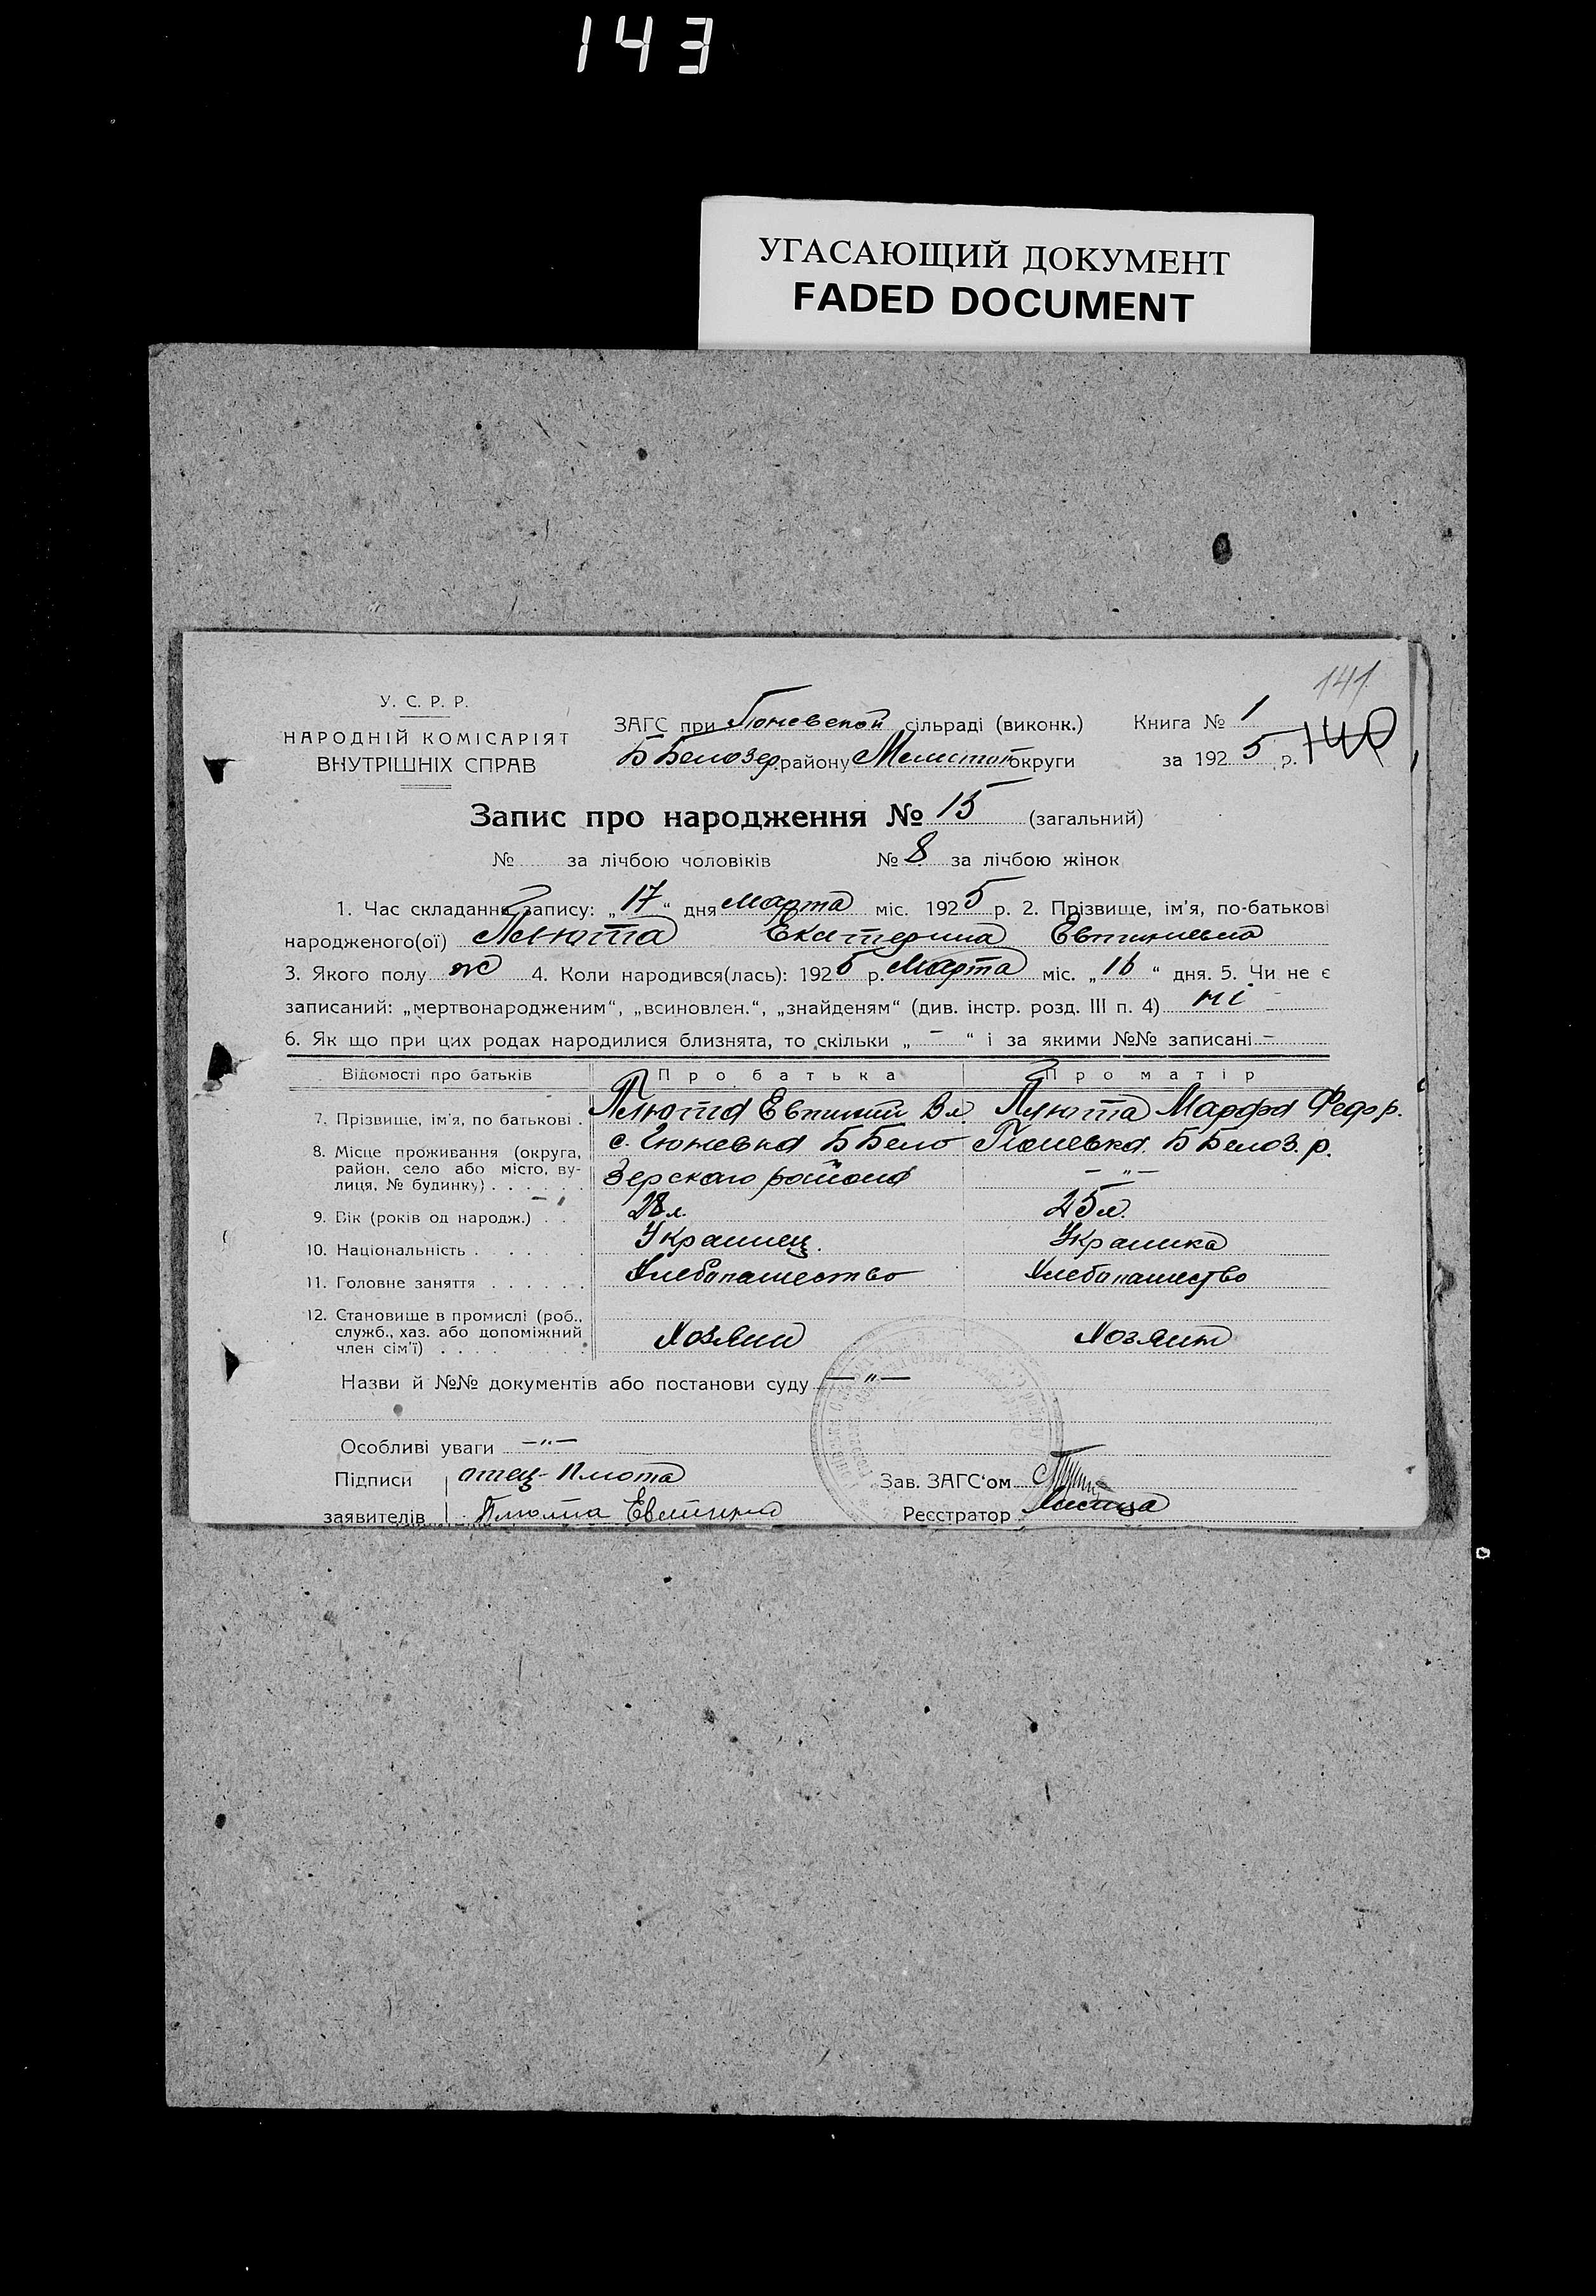 143
УГАСАЮЩИЙ ДОКУМЕНТ
FADED DOCUMENT
141
У. С. Р. Р.
НАРОДНІЙ КОМІСАРІЯТ
ВНУТРІШНІХ СПРАВ
ЗАГС при Гюневской сільраді (виконк.)
Б Белозер. району Мелитоп округи
Книга № 1
за 1925 р. 140
Запис про народження № 15 (загальний)
№ за лічбою чоловіків № 8 за лічбою жінок
1. Час складання запису: „17“ дня Марта міс. 1925 р. 2. Прізвище, ім'я, по-батькові
народженого(ої) Плюта Екатерина
3. Якого полу ж 4. Коли народився(лась): 1925 р. Марта міс. „16“ дня. 5. Чи не є
записаний: „мертвонародженим“, „всиновлен.“, „знайденям“ (див. інстр. розд. III п. 4) ні
6. Як що при цих родах народилися близнята, то скільки „ - “ і за якими №№ записані -
Відомості про батьків Про батька Про матір
7. Прізвище, ім'я, по батькові . Плюта Вл. Плюта Марфа Федор.
8. Місце проживання (округа, район, село або місто, вулиця, № будинку) . . . . . . с. Гюневка Б Бело Гюневка Б Белоз. р.
Зерскаго района — „ —
9. Вік (років од народж.) . . 28 л. 25 л.
10. Національність . . . . . . Украинец. Украинка
11. Головне заняття . . . . . . Хлебопашество Хлебопашество
12. Становище в промислі (роб., служб., хаз. або допоміжний член сім'ї) . . . . Хозяин Хозяин
Назви й №№ документів або постанови суду — „ —
Особливі уваги — „ —
Підписи отец - Плюта Зав. ЗАГС'ом
заявителів Плюта Реєстратор